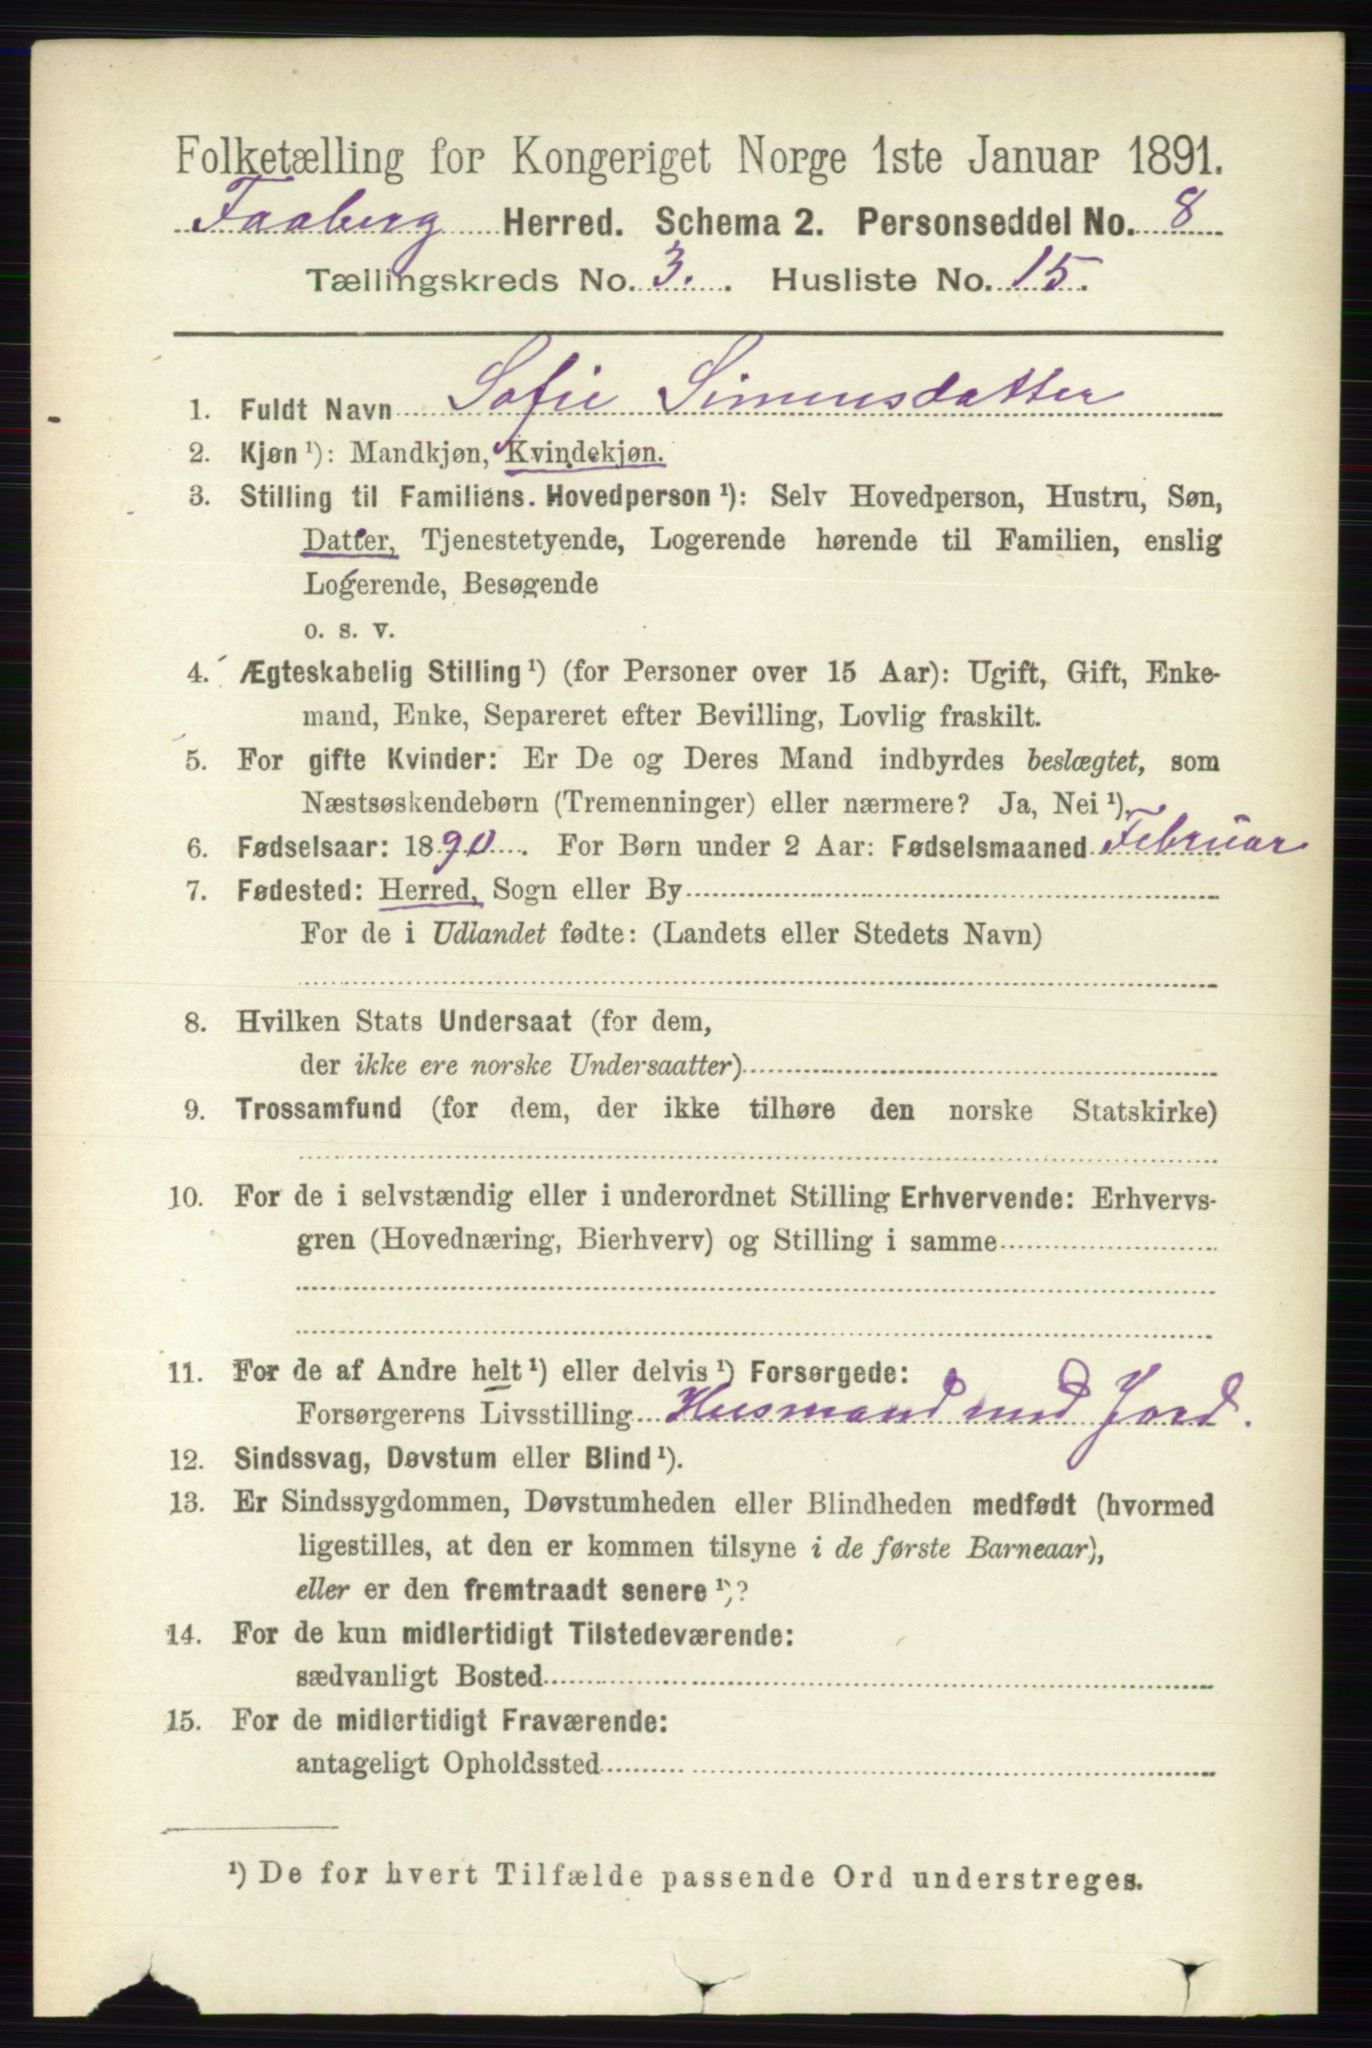 Folketælling for Kongeriget Norge 1ste Januar 1891.
Faaberg Herred. Schema 2. Personseddel No. 8
Tællingskreds No. 3. Husliste No. 15.
1. Fuldt Navn Sofie Simensdatter
2. Kjøn ¹): Mandkjøn, Kvindekjøn.
3. Stilling til Familiens Hovedperson ¹): Selv Hovedperson, Hustru, Søn,
Datter, Tjenestetyende, Logerende hørende til Familien, enslig
Logerende, Besøgende
o. s. v.
4. Ægteskabelig Stilling ¹) (for Personer over 15 Aar): Ugift, Gift, Enke-
mand, Enke, Separeret efter Bevilling, Lovlig fraskilt.
5. For gifte Kvinder: Er De og Deres Mand indbyrdes beslægtet, som
Næstsøskendebørn (Tremenninger) eller nærmere? Ja, Nei ¹).
6. Fødselsaar: 1890. For Børn under 2 Aar: Fødselsmaaned Februar
7. Fødested: Herred, Sogn eller By
For de i Udlandet fødte: (Landets eller Stedets Navn)
8. Hvilken Stats Undersaat (for dem,
der ikke ere norske Undersaatter)
9. Trossamfund (for dem, der ikke tilhøre den norske Statskirke)
10. For de i selvstændig eller i underordnet Stilling Erhvervende: Erhvervs-
gren (Hovednæring, Bierhverv) og Stilling i samme
11. For de af Andre helt ¹) eller delvis ¹) Forsørgede:
Forsørgerens Livsstilling Husmand med Jord.
12. Sindssvag, Døvstum eller Blind ¹).
13. Er Sindssygdommen, Døvstumheden eller Blindheden medfødt (hvormed
ligestilles, at den er kommen tilsyne i de første Barneaar),
eller er den fremtraadt senere ¹)?
14. For de kun midlertidigt Tilstedeværende:
sædvanligt Bosted
15. For de midlertidigt Fraværende:
antageligt Opholdssted
¹) De for hvert Tilfælde passende Ord understreges.